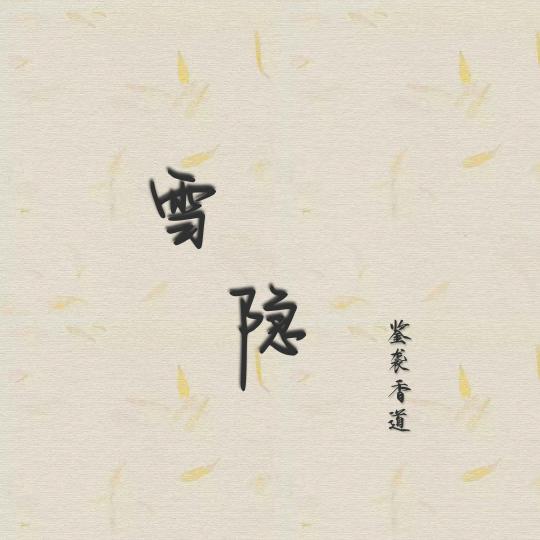 雪隐
鉴袭香道